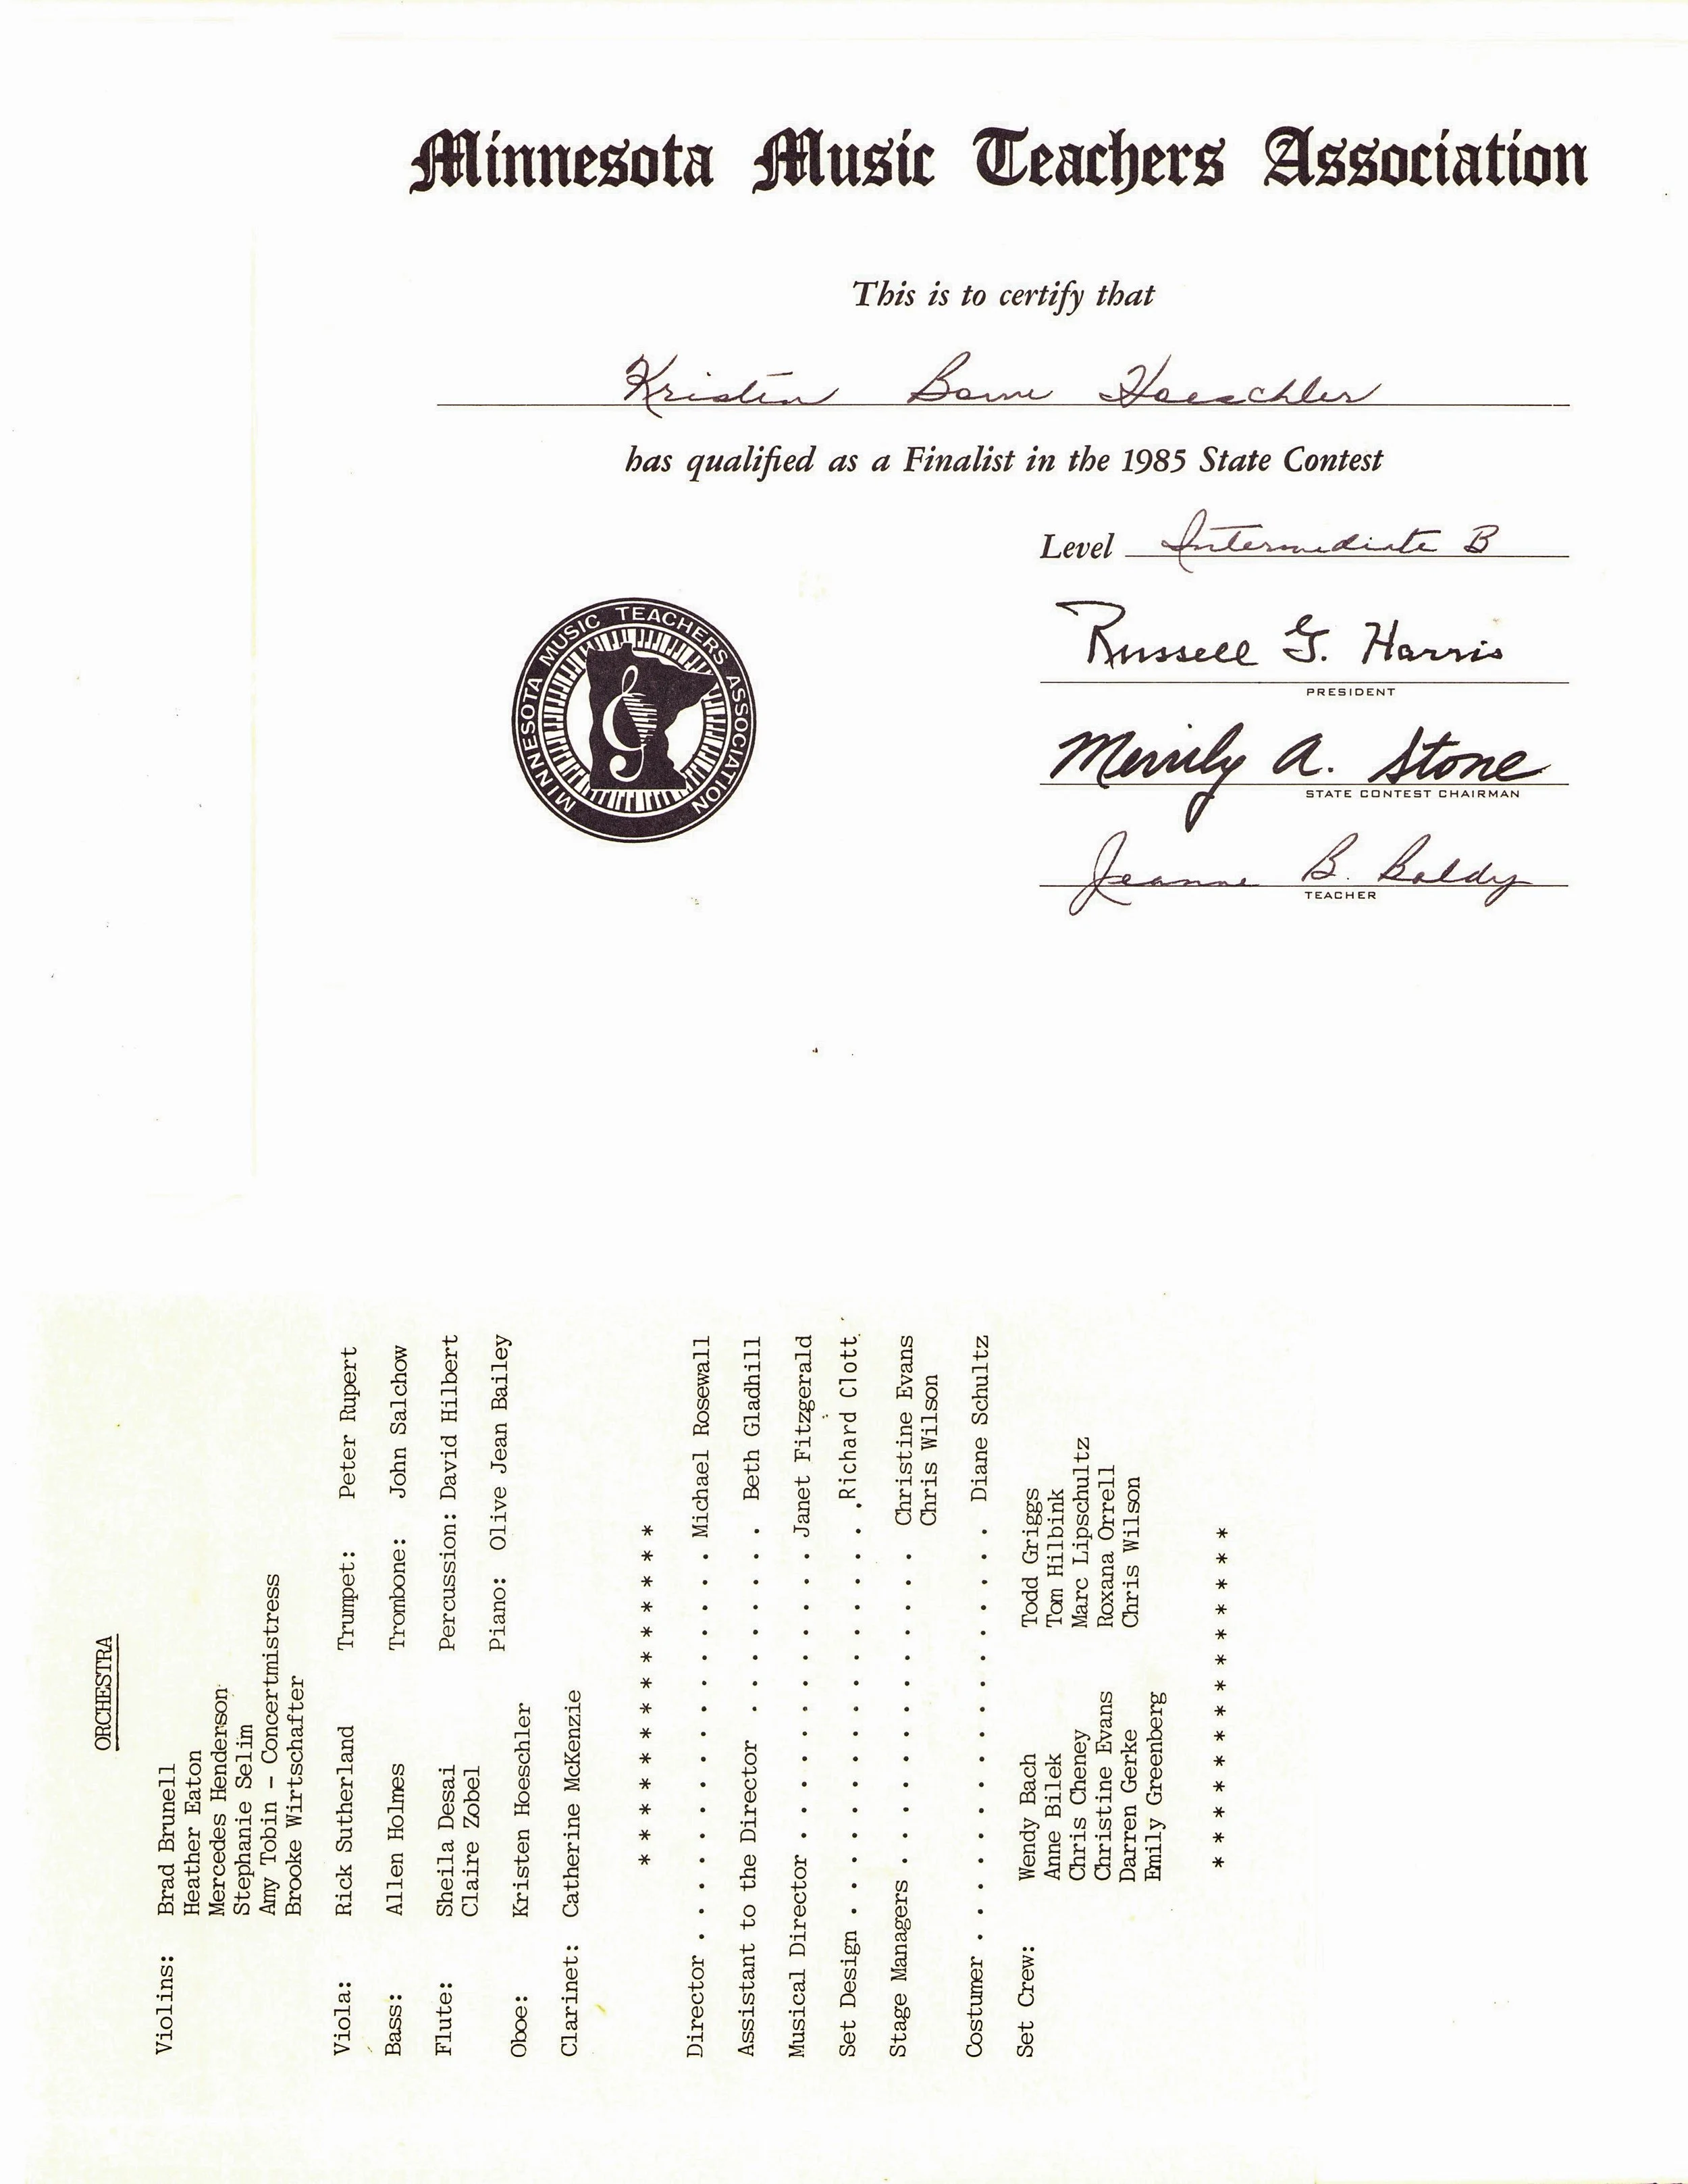 Minnesota Music Teachers Association
This is to certify that
Kristen Hoeschler
has qualified as a Finalist in the 1985 State Contest
Level Intermediate B
MINNESOTA MUSIC TEACHERS ASSOCIATION
Russell G. Harris
PRESIDENT
Merrily A. Stone
STATE CONTEST CHAIRMAN
Jeanne B. Baldy
TEACHER
ORCHESTRA
Violins: Brad Brunell
Heather Eaton
Mercedes Henderson
Stephanie Selim
Amy Tobin - Concertmistress
Brooke Wirtschafter
Viola: Rick Sutherland Trumpet: Peter Rupert
Bass: Allen Holmes Trombone: John Salchow
Flute: Sheila Desai Percussion: David Hilbert
Claire Zobel
Piano: Olive Jean Bailey
Oboe: Kristen Hoeschler
Clarinet: Catherine McKenzie
* * * * * * * * * * * * * *
Director . . . . . . . . . . . . . . . . Michael Rosewall
Assistant to the Director . . . . . . . . Beth Gladhill
Musical Director . . . . . . . . . . . . Janet Fitzgerald
Set Design . . . . . . . . . . . . . . . . Richard Clott
Stage Managers . . . . . . . . . . . . . Christine Evans
Chris Wilson
Costumer . . . . . . . . . . . . . . . . . Diane Schultz
Set Crew: Wendy Bach Todd Griggs
Anne Bilek Tom Hilbink
Chris Cheney Marc Lipschultz
Christine Evans Roxana Orrell
Darren Gerke Chris Wilson
Emily Greenberg
* * * * * * * * * * * * * *